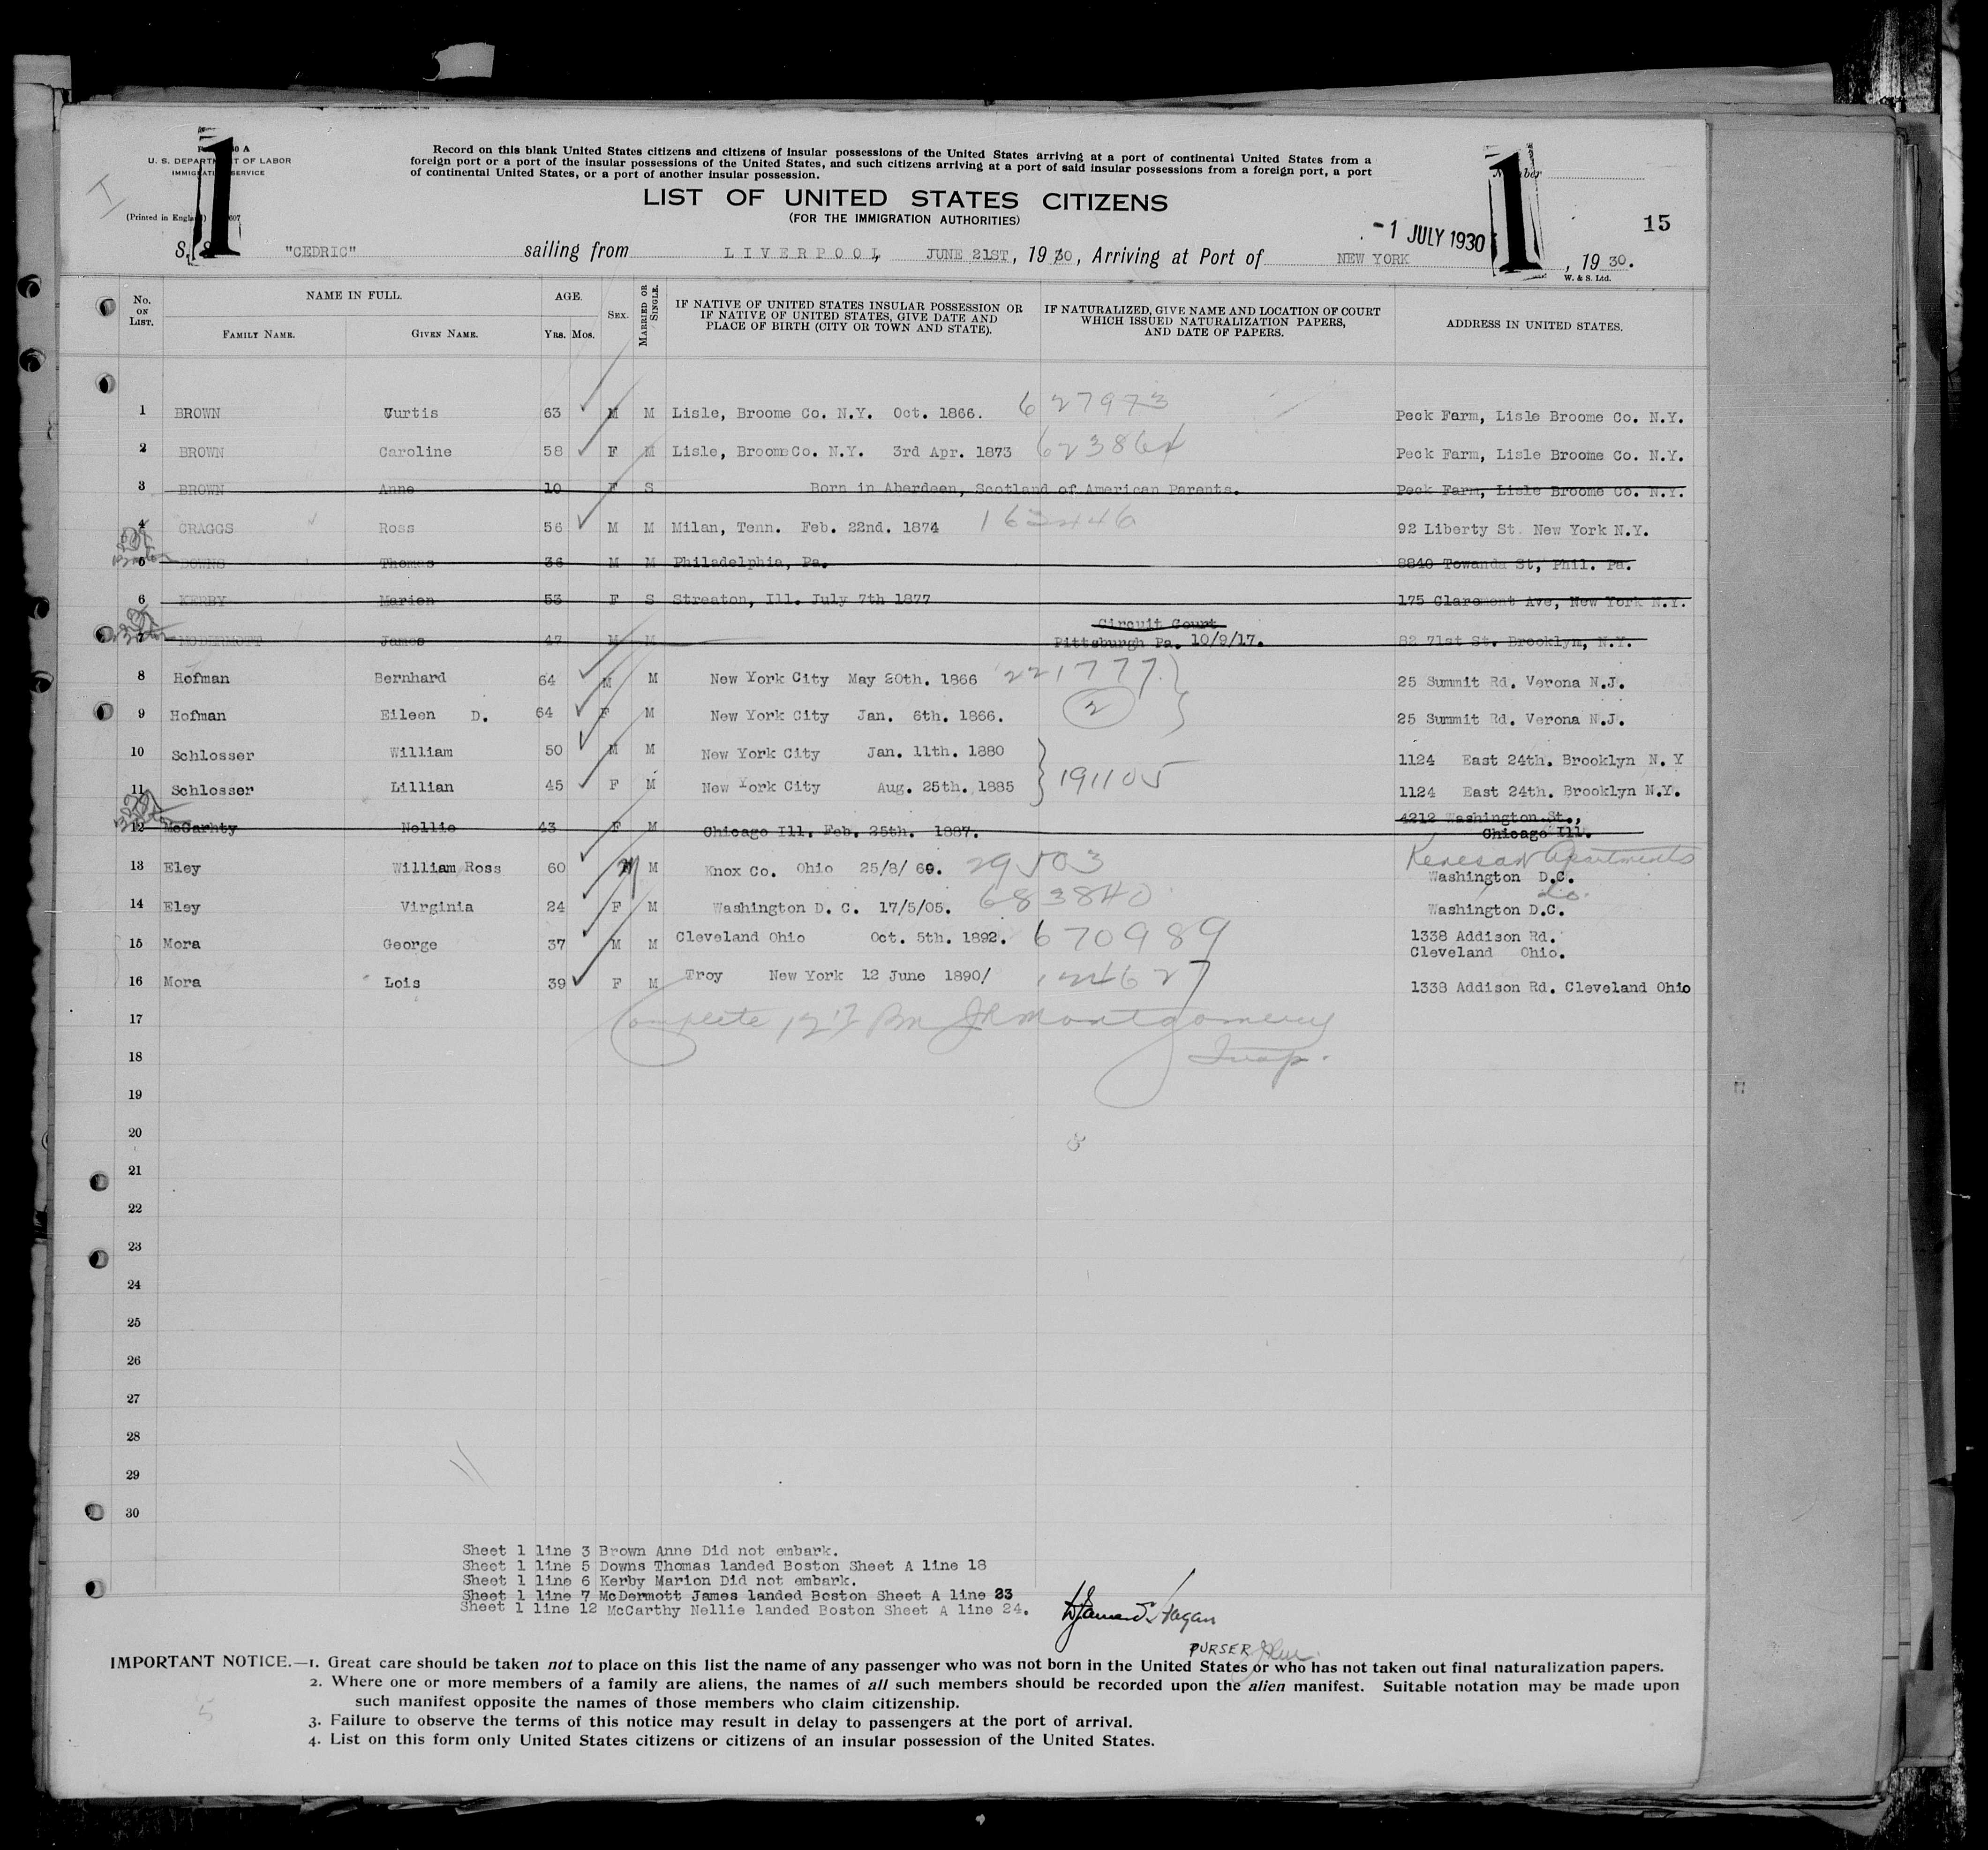 1
U. S. DEPARTMENT OF LABOR
IMMIGRATION SERVICE
(Printed in England) 607
Record on this blank United States citizens and citizens of insular possessions of the United States arriving at a port of continental United States from a
foreign port or a port of the insular possessions of the United States, and such citizens arriving at a port of said insular possessions from a foreign port, a port
of continental United States, or a port of another insular possession.
LIST OF UNITED STATES CITIZENS
(FOR THE IMMIGRATION AUTHORITIES)
1
Number
15
-1 JULY 1930
S. S. "CEDRIC" sailing from LIVERPOOL, JUNE 21ST, 1930, Arriving at Port of NEW YORK, 1930.
W. & S. Ltd.
No. ON LIST. NAME IN FULL. FAMILY NAME. GIVEN NAME. AGE. Yrs. Mos. SEX. MARRIED OR SINGLE. IF NATIVE OF UNITED STATES INSULAR POSSESSION OR IF NATIVE OF UNITED STATES, GIVE DATE AND PLACE OF BIRTH (CITY OR TOWN AND STATE). IF NATURALIZED, GIVE NAME AND LOCATION OF COURT WHICH ISSUED NATURALIZATION PAPERS, AND DATE OF PAPERS. ADDRESS IN UNITED STATES.
1 BROWN Curtis 63 M M Lisle, Broome Co. N.Y. Oct. 1866. 627973 Peck Farm, Lisle Broome Co. N.Y.
2 BROWN Caroline 58 F M Lisle, Broome Co. N.Y. 3rd Apr. 1873 623864 Peck Farm, Lisle Broome Co. N.Y.
3 BROWN Anne 10 F S Born in Aberdeen, Scotland of American Parents. Peck Farm, Lisle Broome Co. N.Y.
4 CRAGGS Ross 56 M M Milan, Tenn. Feb. 22nd. 1874 92 Liberty St. New York N.Y.
5 DOWNS Thomas 36 M M Philadelphia, Pa. 8840 Towanda St, Phil. Pa.
6 KERBY Marion 53 F S Streaton, Ill. July 7th 1877 175 Claremont Ave, New York N.Y.
Circuit Court
7 McDERMOTT James 47 M M Pittsburgh Pa. 10/9/17. 82 71st St. Brooklyn, N.Y.
8 Hofman Bernhard 64 M M New York City May 20th. 1866 221777 25 Summit Rd. Verona N.J.
9 Hofman Eileen D. 64 F M New York City Jan. 6th. 1866. 2 25 Summit Rd. Verona N.J.
10 Schlosser William 50 M M New York City Jan. 11th. 1880 1124 East 24th. Brooklyn N.Y
11 Schlosser Lillian 45 F M New York City Aug. 25th. 1885 191105 1124 East 24th. Brooklyn N.Y.
12 McCarhty Nellie 43 F M Chicago Ill. Feb. 25th. 1887. 4212 Washington St.,
Chicago Ill.
13 Eley William Ross 60 M M Knox Co. Ohio 25/8/69. 29503 Kenesaw Apartments
Washington D.C.
14 Eley Virginia 24 F M Washington D. C. 17/5/05. 683840 do.
Washington D.C.
15 Mora George 37 M M Cleveland Ohio Oct. 5th. 1892. 670989 1338 Addison Rd.
Cleveland Ohio.
16 Mora Lois 39 F M Troy New York 12 June 1890/ 124627 1338 Addison Rd. Cleveland Ohio
17 Complete Montgomery
18 Insp.
19
20
21
22
23
24
25
26
27
28
29
30
Sheet 1 line 3 Brown Anne Did not embark.
Sheet 1 line 5 Downs Thomas landed Boston Sheet A line 18
Sheet 1 line 6 Kerby Marion Did not embark.
Sheet 1 line 7 McDermott James landed Boston Sheet A line 23
Sheet 1 line 12 McCarthy Nellie landed Boston Sheet A line 24.
PURSER
IMPORTANT NOTICE.—1. Great care should be taken not to place on this list the name of any passenger who was not born in the United States or who has not taken out final naturalization papers.
2. Where one or more members of a family are aliens, the names of all such members should be recorded upon the alien manifest. Suitable notation may be made upon
such manifest opposite the names of those members who claim citizenship.
3. Failure to observe the terms of this notice may result in delay to passengers at the port of arrival.
4. List on this form only United States citizens or citizens of an insular possession of the United States.